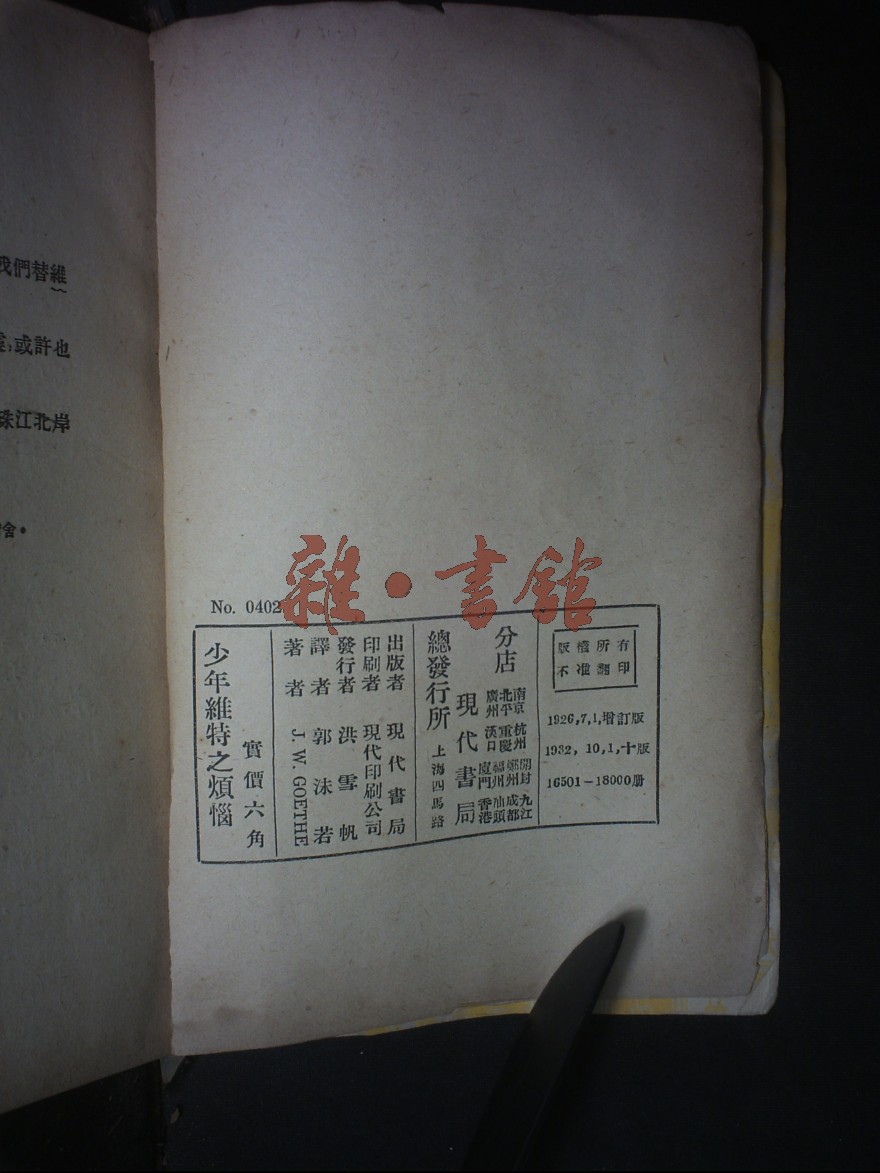 我們替維
或許也
珠江北岸
舍。
雜·書館
No. 0402
版權所有
不准翻印
1926,7,1,增訂版
1932, 10,1,十版
16501－18000册
分店
南京 杭州 開封 九江
北平 重慶 鄭州 成都
廣州 漢口 福州 汕頭
廈門 香港
現代書局
總發行所 上海四馬路
出版者 現代書局
印刷者 現代印刷公司
發行者 洪雪帆
譯者 郭沫若
著者 J. W. GOETHE
實價六角
少年維特之煩惱